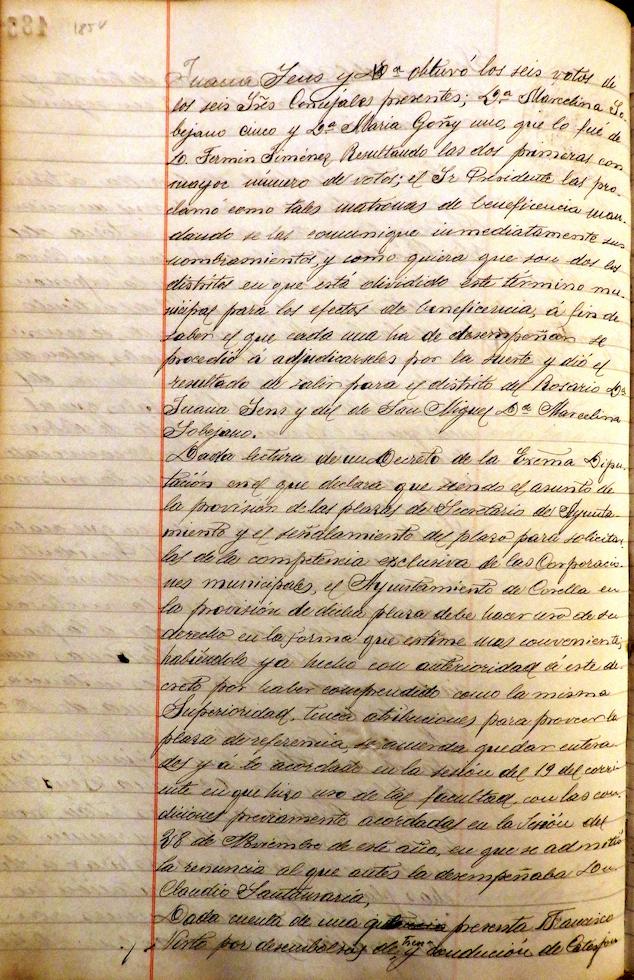 185v
Juana Sens y Nª obtuvó los seis votos de
los seis Sres Concejales presentes; Dª Marcelina So-
bejano cinco y Dª Maria Goñy uno, que lo fué de
D. Fermin Jiménez Resultando las dos primeras con
mayor número de votos; el Sr Presidente las pro-
clamó como tales matronas de beneficencia man-
dando se las comunique inmediatamente sus
nombramientos, y como quiera que son dos los
distritos en que está dividido este término mu-
nicipal para los efectos de beneficencia, á fin de
saber el que cada una ha de desempeñar se
procedió á adjudicarseles por la suerte y dió el
resultado de salir para el distrito del Rosario Dª
Juana Sens y del de San Miguel Dª Marcelina
Sobejano.
Dada lectura de un Decreto de la Exema Dipu-
tación en el que declara que siendo el asunto de
la provisión de las plazas de Secretario de Ayunta-
miento y el señalamiento del plazo para solicitar-
las de la competencia exclusiva de las Corporacio-
nes municipales, el Ayuntamiento de Corella en
la provisión de dicha plaza debe hacer uso de su
derecho en la forma que estime mas conveniente,
habiéndolo ya hecho con anterioridad á este de-
creto por haber comprendido como la misma
Superioridad, tenia atribuciones para proveer la
plaza de referencia, se acuerda quedar entera-
dos y á lo acordado en la sesión del 19 del corri-
ente en que hizo uso de tal facultad, con las con-
diciones previamente acordadas en la Sesión del
28 de Noviembre de este año, en que se admitió
la renuncia al que antes la desempeñaba Don
Claudio Santamaria,
Dada cuenta de una que presenta Francisco
Virto por desembolsos de y conducción de